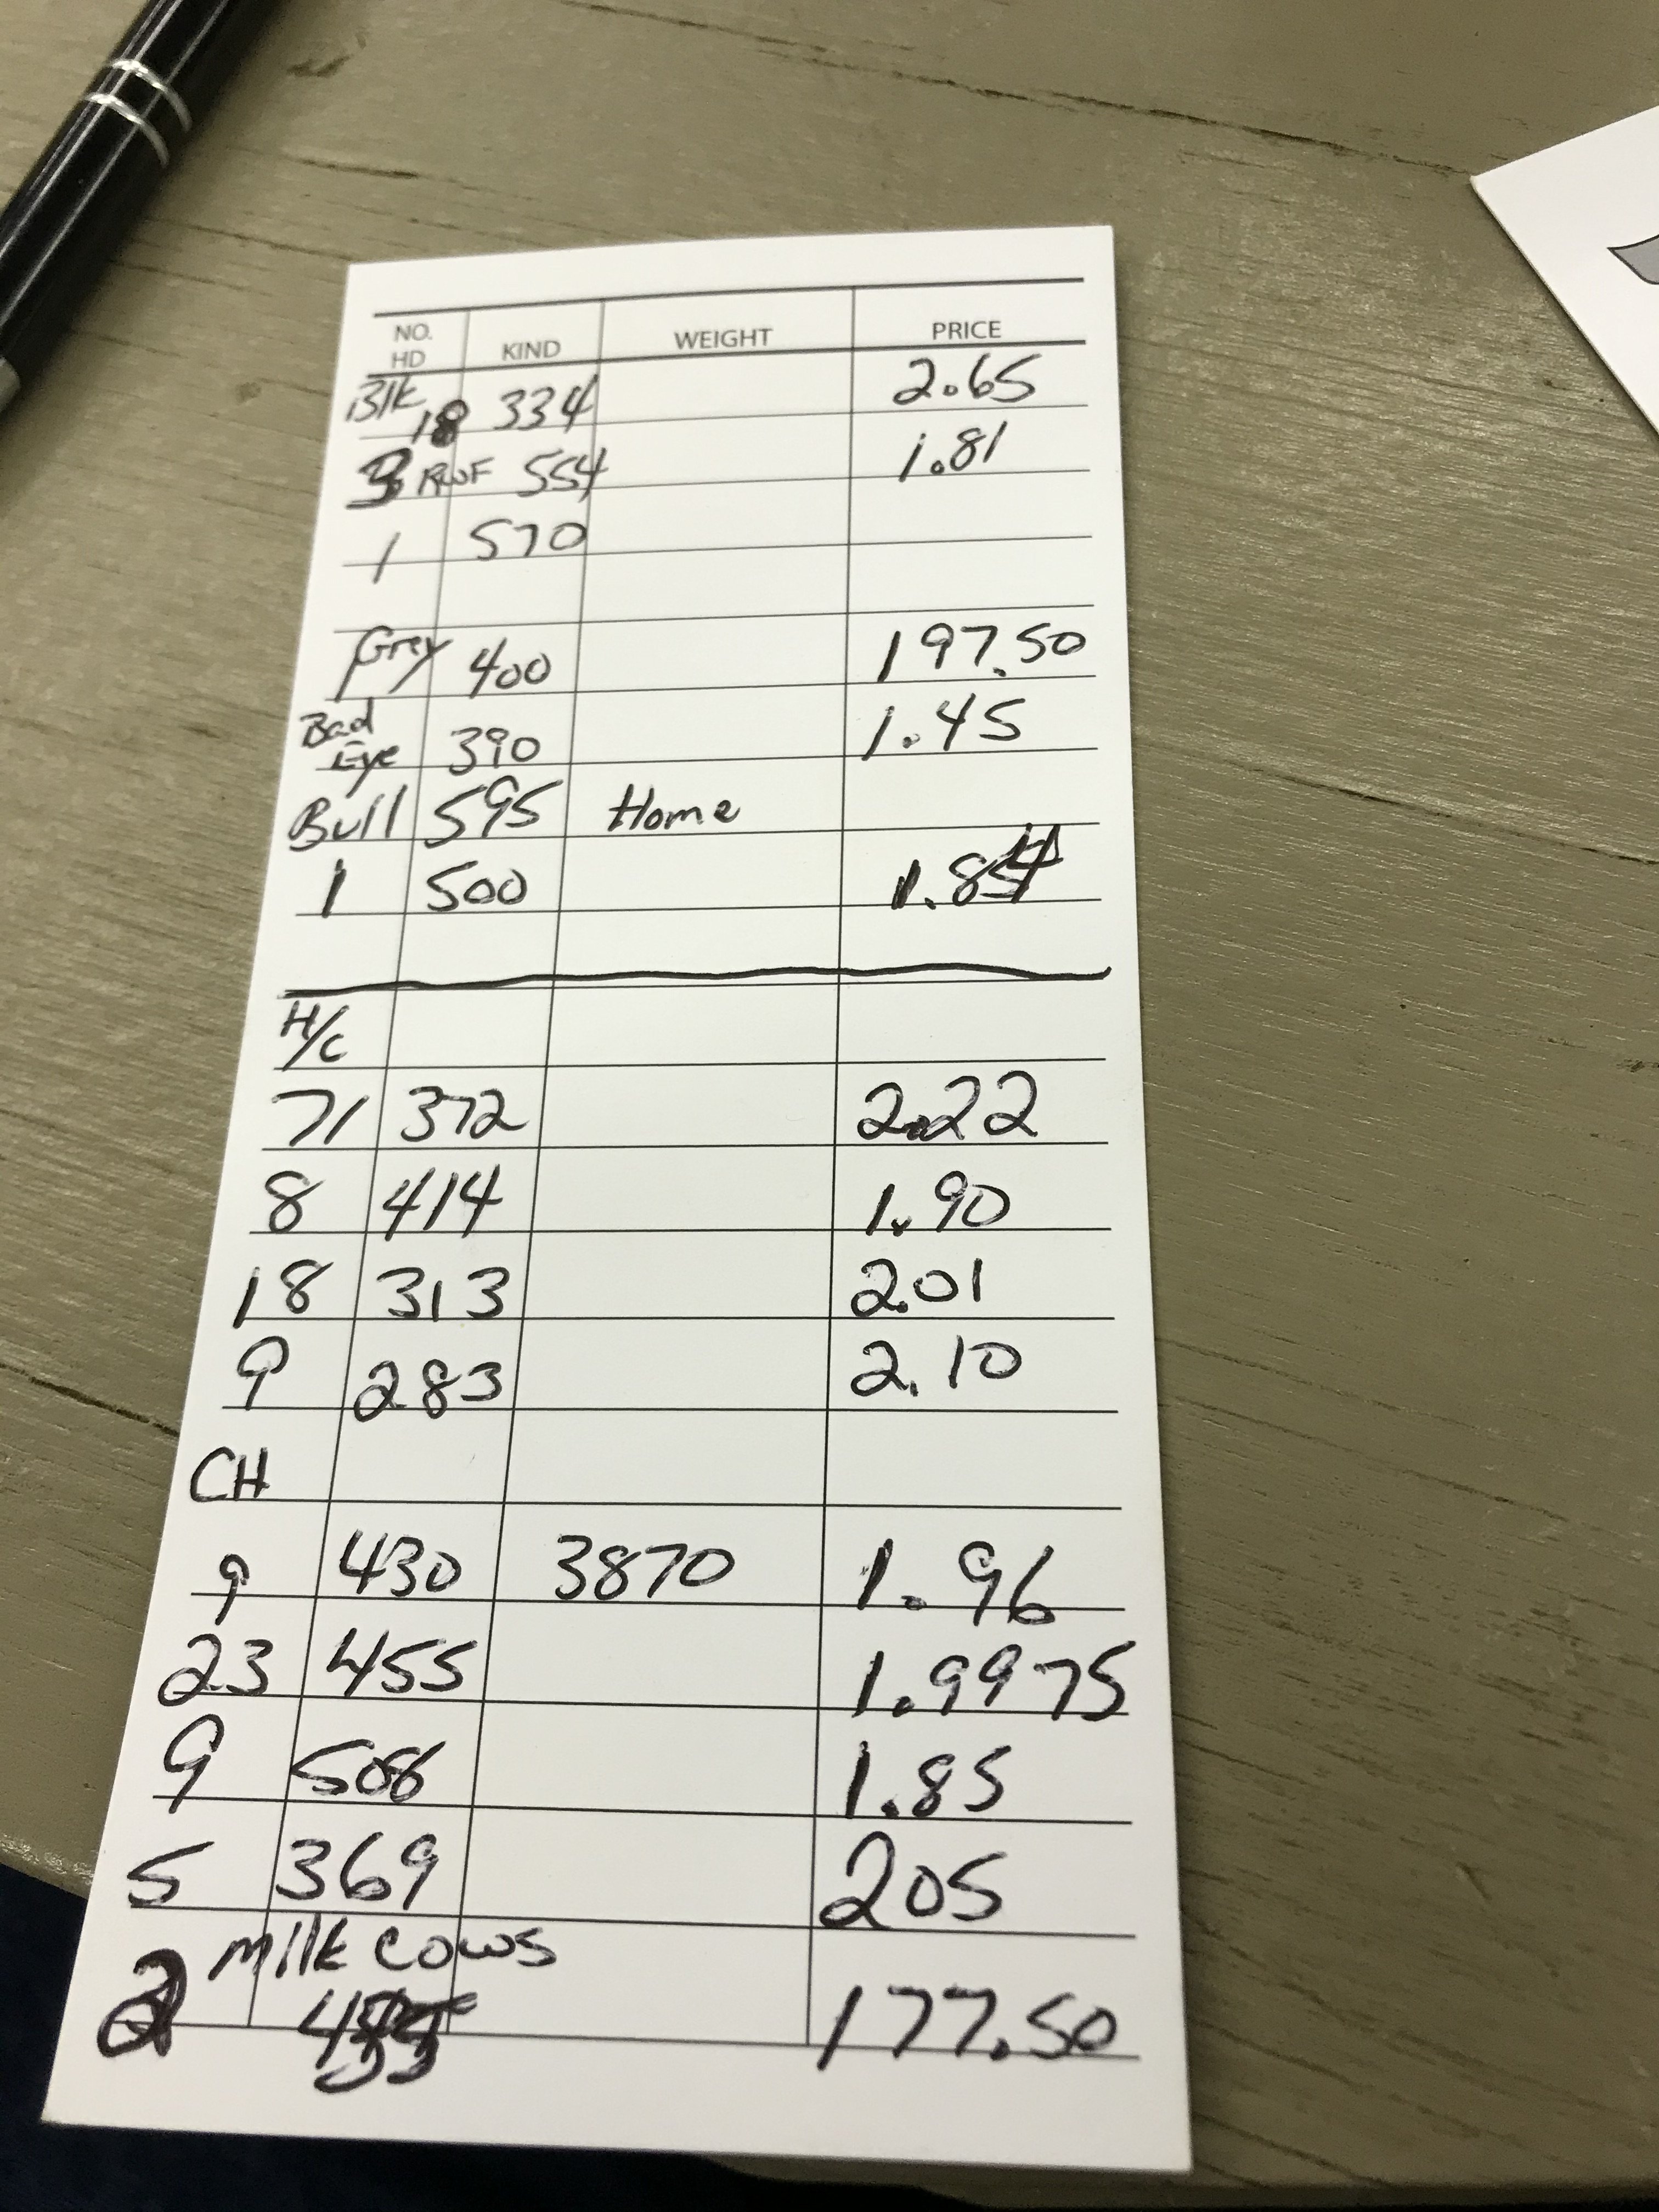 NO. HD KIND WEIGHT PRICE
Blk 18 334 2.65
3 RWF 554 1.81
1 570
Grey 400 197.50
Bad Eye 390 1.45
Bull 595 Home
1 500
H/C
71 372 2.22
8 414 1.90
18 313 2.01
9 283 2.10
CH
9 430 3870 1.96
23 455 1.9975
9 508 1.85
5 369 205
Milk Cows
2 177.50